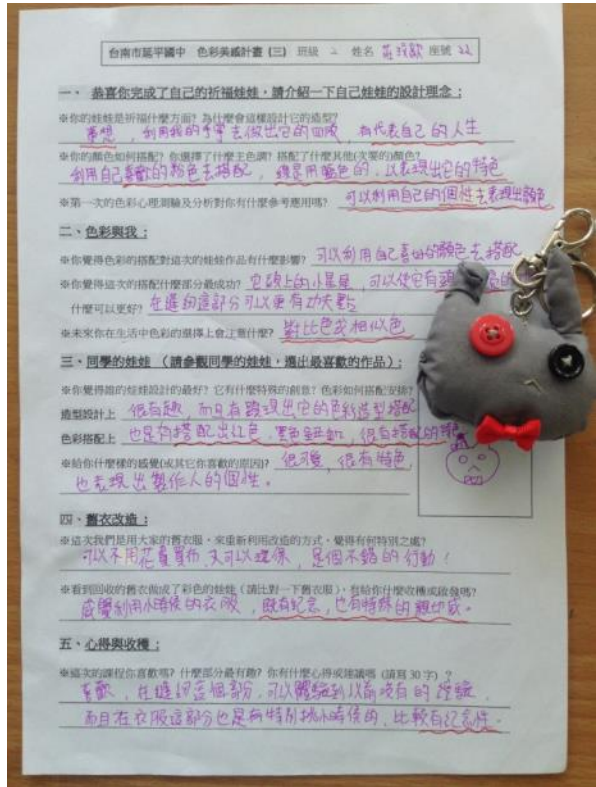 台南市延平國中 色彩美感計畫 (三) 班級 2 姓名 座號 22
一、 恭喜你完成了自己的祈福娃娃,請介紹一下自己娃娃的設計理念:
※你的娃娃是祈福什麼方面? 為什麼會這樣設計它的造型?
夢想,利用我的手等去做出它的四肢,為代表自己的人生
※你的顏色如何搭配? 你選擇了什麼主色調? 搭配了什麼其他(次要的)顏色?
利用自己喜歡的顏色去搭配,還是用暖色的,以表現出它的特色
※第一次的色彩心理測驗及分析對你有什麼參考應用嗎? 可以利用自己的個性去表現出顏色
二、色彩與我:
※你覺得色彩的搭配對這次的娃娃作品有什麼影響? 可以利用自己喜好的顏色去搭配
※你覺得這次的搭配什麼部分最成功? 它頭上的小星星,可以使它有
什麼可以更好? 在縫的這部分可以更有功夫點
※未來你在生活中色彩的選擇上會注意什麼? 對比色或相似色
三、同學的娃娃 (請參觀同學的娃娃,選出最喜歡的作品):
※你覺得誰的娃娃設計的最好? 它有什麼特殊的創意? 色彩如何搭配安排?
造型設計上 很有趣,而且有表現出它的色彩造型搭配
色彩搭配上 也是有搭配出紅色、黑色鈕釦,很有搭配的
※給你什麼樣的感覺(或其它你喜歡的原因)? 很可愛,很有特色,
也表現出製作人的個性。
四、舊衣改造:
※這次我們是用大家的舊衣服,來重新利用改造的方式,覺得有何特別之處?
可以不用花費買布,又可以環保,是個不錯的行動!
※看到回收的舊衣做成了彩色的娃娃(請比對一下舊衣服),有給你什麼收穫或啟發嗎?
感覺利用小時候的衣服,既有紀念,也有特殊的親切感。
五、心得與收穫:
※這次的課程你喜歡嗎? 什麼部分最有趣? 你有什麼心得或建議嗎 (請寫 30 字) ?
喜歡,在縫紉這個部分,可以體驗到以前沒有的經驗,
而且在衣服這部分也是有特別挑小時候的,比較有紀念性。